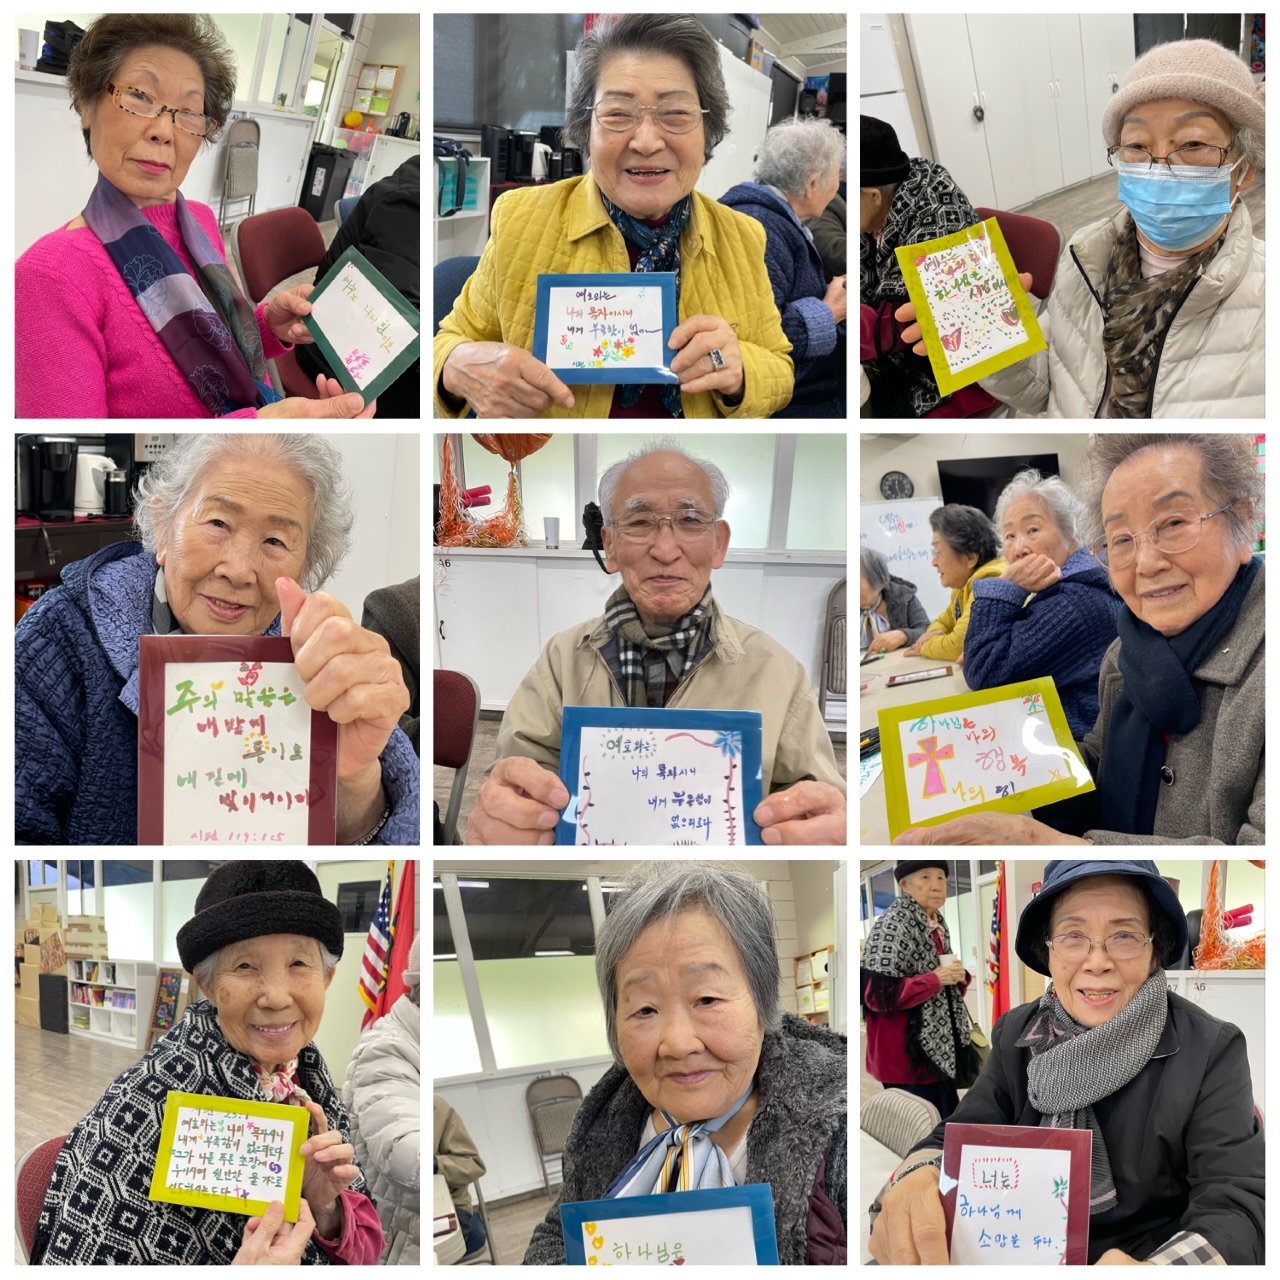 여호와는
나의 목자이시니
내게 부족함이 없
시편 23
예수
하나님은
사랑이시
주의 말씀은
내 발에
등이요
내 길에
빛이니이다
시편 119:105
A6
여호와는
나의 목자시니
내게 부족함이
없으리로다
하나님은
나의
행복
나의 힘!
시편 23:1
여호와는 나의 목자시니
내게 부족함이 없으리로다
그가 나를 푸른 초장에
누이시며 쉴만한 물 가으로
인도하시는도다
하나님은
A7
A6
너는
하나님께
소망을 두라.